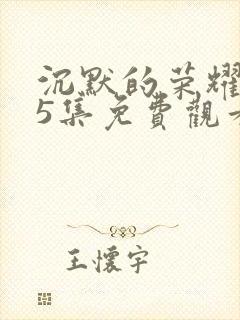 沉默的荣耀
5集免費觀
王懷宇